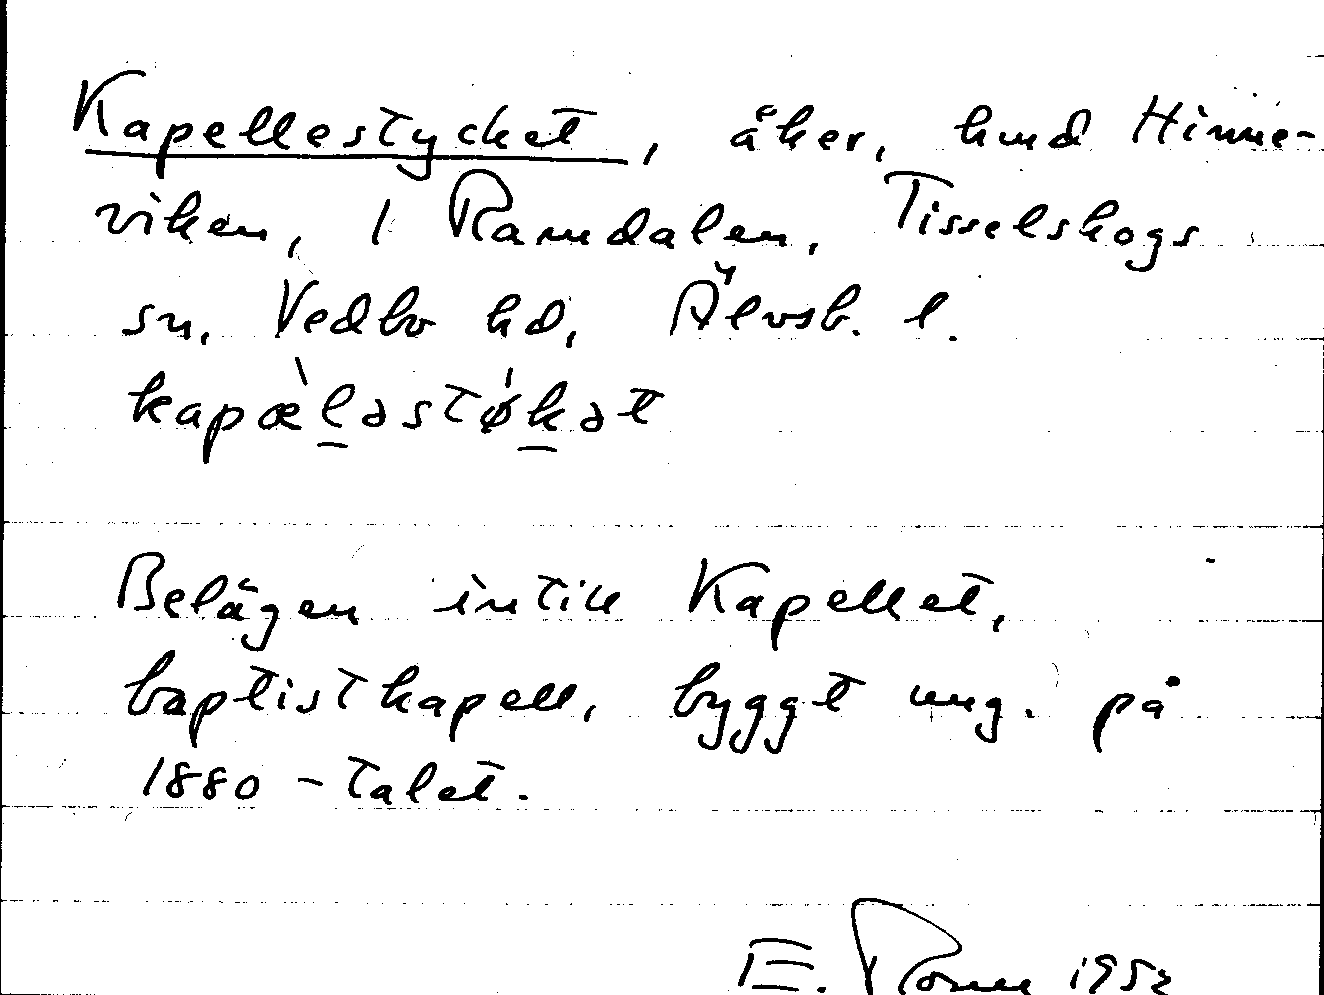 Kapellestycket, åker, hmd Hinne-
viken, 1 Ramdalen, Tisselskogs
sn, Vedbo hd, Älvsb. l.
kapæ̀ləstø̍kət
Belägen intill Kapellet,
baptistkapell, byggt ung. på
1880-talet.
E. 1952